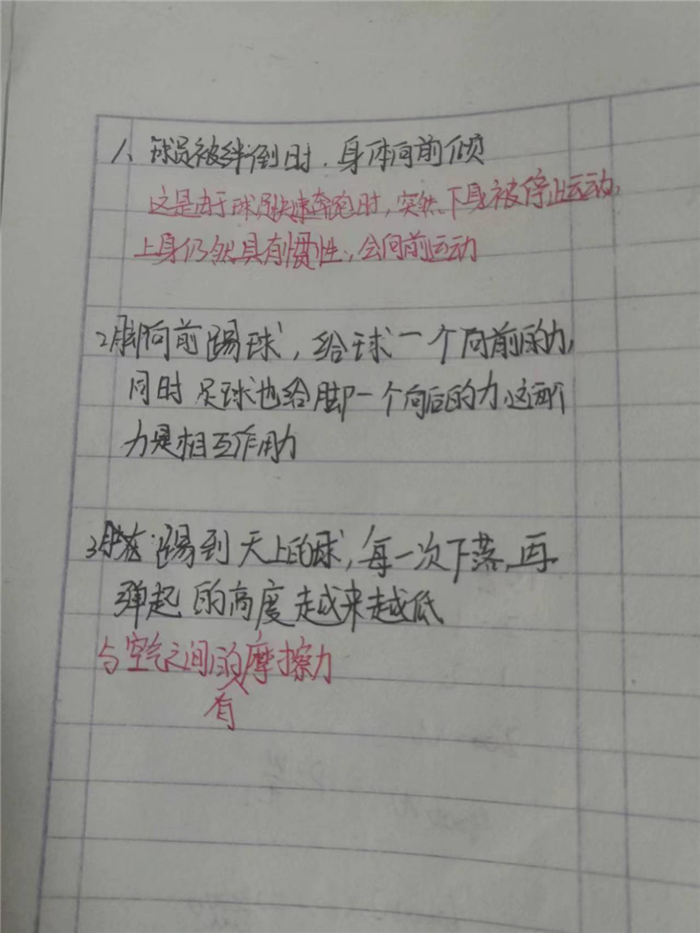 1、球员被绊倒时.身体向前倾
这是由于球员快速奔跑时,突然下身被停止运动,
上身仍然具有惯性,会向前运动
2脚向前踢球,给球一个向前的力,
同时足球也给脚一个向后的力,这两个
力是相互作用力
3踢到天上的球,每一次下落,再
弹起的高度越来越低
与空气之间的摩擦力
有